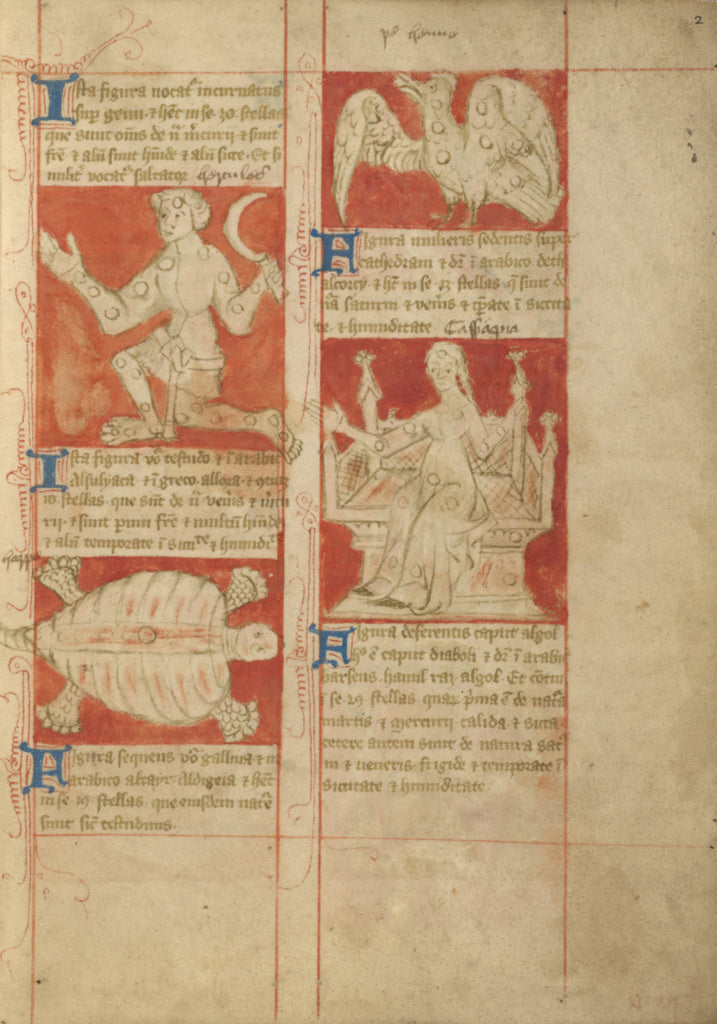 2
Ista figura uocat^r incuruatus
sup genu · ⁊ hēt in se · 30 · stellas
que sunt om̄s de n̄ m̄curii ⁊ sunt
fr̄e ⁊ alii sunt hūide ⁊ alii sicce · Et si
milit̄ vocat^r saltator hercules
Ista figura vo^r testudo · ⁊ ī arabic
Alsulyaca · ⁊ ī greco · allora ·
10 · stellas · que sūt de n̄ ven̄is ⁊ m̄cu
rii · ⁊ sunt fr̄e ⁊ multū hūide
⁊ alii temporate ī sicci^te ⁊ humidi^te
Figura sequens vo^r gallina ⁊ in
arabico altayr Aldigeia ⁊ hēt
in se 19 stellas · que eiusdem nat̄e
sunt sic̄ testudinis ·
Figura mulieris sedentis super
cathedram ⁊ dr̄ ī arabico deth
alcorcy ⁊ hēt in se · 13 stellas q̄ sunt de
saturni ⁊ ven̄is ⁊ ī siccita
te · ⁊ humiditate · Cassiapia
Figura deferentis caput algol
h^o ē caput diaboli ⁊ dr̄ ī arabic
barseus · hamil raz algol · Et
ī se · 29 · stellas · quaꝝ p̄ma ē de nat̄a
martis ⁊ mercurii calida · ⁊ sicca ·
cetere autem sunt de natura sat^r
ni ⁊ ueneris frigide ⁊ temporate ī
siccitate ⁊ humiditate